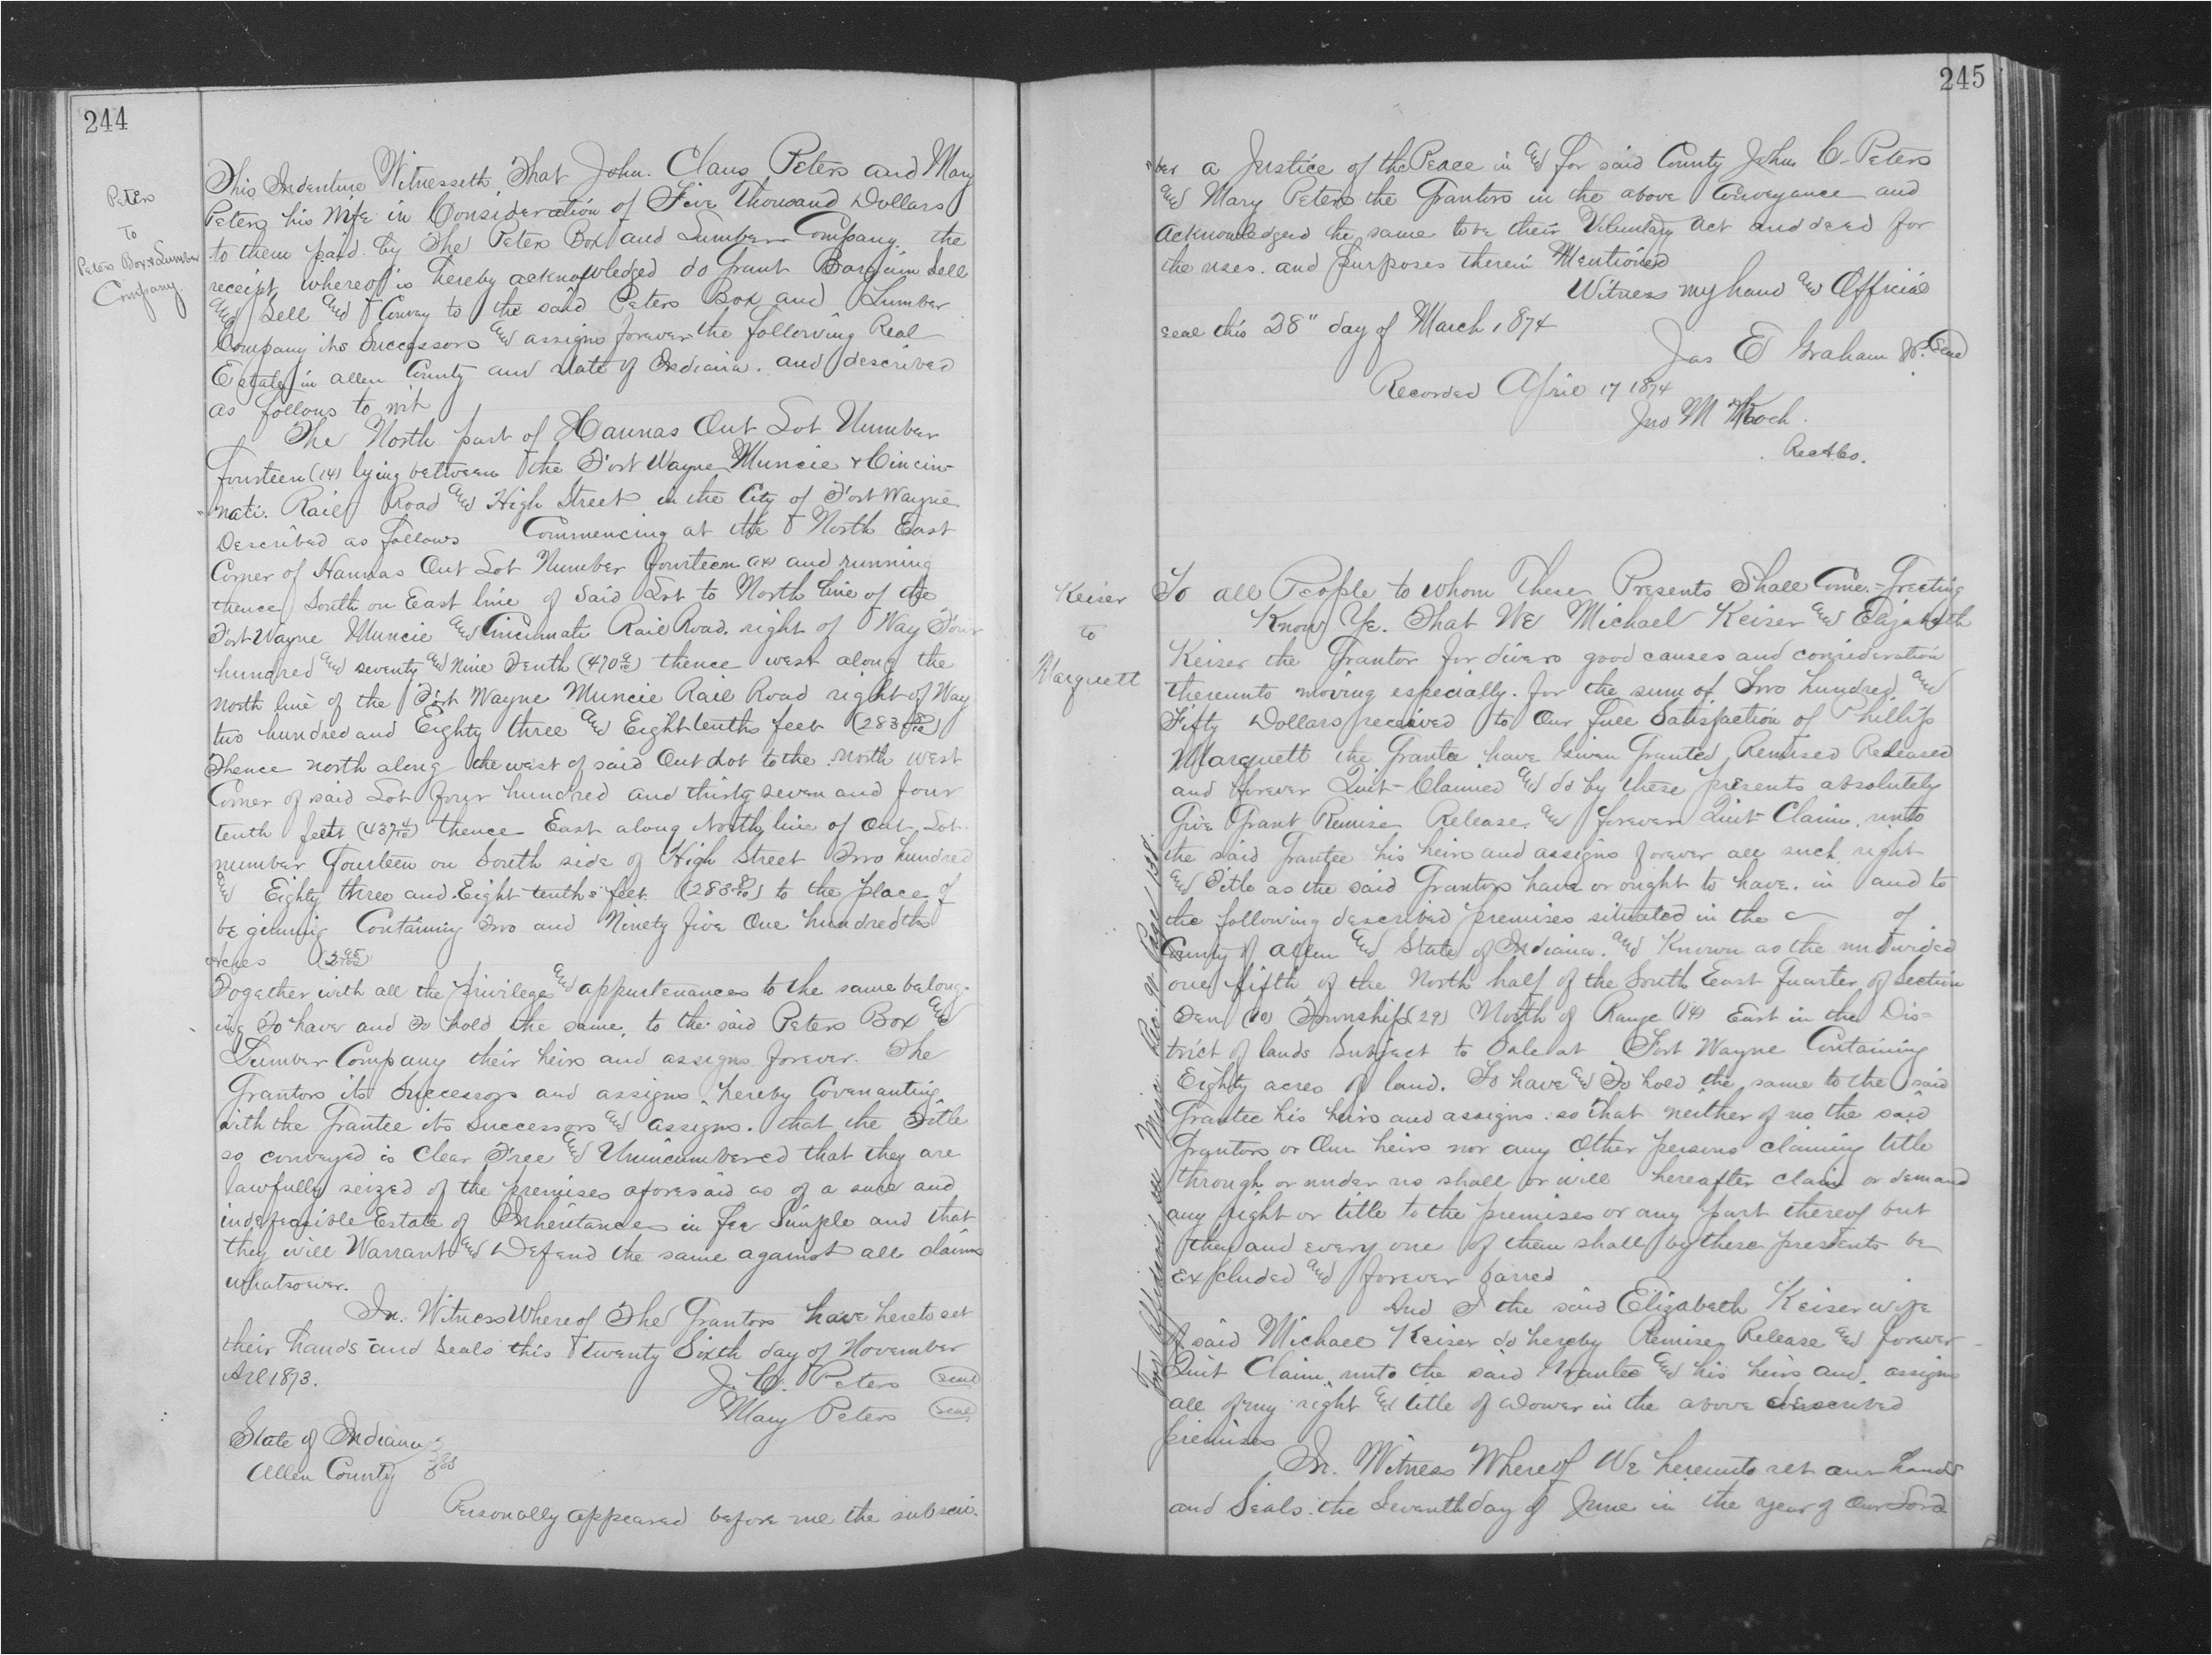 244
Peters
To
Peters Box & Lumber
Company.
This Indenture Witnesseth That John. Claus Peters and Mary
Peters his Wife in Consideration of Five Thousand Dollars
to them paid by The Peters Box and Lumber Company. the
receipt whereof is hereby acknowledged do Grant Bargain Sell
and Sell and Convey to the said Peters Box and Lumber
Company its Successors and assigns forever the following Real
Estate in Allen County and State of Indiana. and described
as follows to wit
The North part of Hannas Out Lot Number
fourteen (14) lying between the Fort Wayne Muncie & Cincin-
"nati. Rail Road and High Street in the City of Fort Wayne
Described as follows Commencing at the North East
Corner of Hannas Out Lot Number fourteen (14) and running
thence South on East line of Said Lot to North line of the
Fort Wayne Muncie and Cincinnati Rail Road. right of Way Four
hundred and seventy and Nine Tenth (470 9/10) thence west along the
north line of the Fort Wayne Muncie Rail Road right of Way
two hundred and Eighty three and Eight tenths feet (283 8/10)
Thence north along the west of said Out Lot to the North West
Corner of said Lot four hundred and thirty seven and four
tenth feet (437 4/10) thence East along North line of Out Lot
number Fourteen on South side of High Street Two hundred
and Eighty three and Eight tenths feet. (283 8/10) to the place of
be ginning Containing Two and Ninety five One hundredths
Acres (2 95/100)
Together with all the privileges and appurtenances to the same belong-
ing To have and To hold the same, to the said Peters Box and
Lumber Company their heirs and assigns forever. The
Grantors its Successors and assigns hereby Covenanting
with the Grantee its Successors and assigns. that the Title
so conveyed is Clear Free and Unincumbered that they are
lawfully seized of the premises aforesaid as of a sure and
indefeasible Estate of Inheritance in fee Simple and that
they will Warrant and Defend the same against all claims
whatsoever.
In. Witness Whereof The Grantors have hereto set
their hands and Seals this twenty Sixth day of November
A.D. 1873.
J. C. Peters (Seal)
Mary Peters (Seal)
State of Indiana
Allen County } SS
Personally appeared before me the subscri-
245
"ber a Justice of the Peace in and for said County John C. Peters
and Mary Peters the Grantors in the above Conveyance and
Acknowledged the same to be their Voluntary Act and deed for
the uses. and purposes therein Mentioned
Witness my hand and Official
seal this 28" day of March 1874
Jas E Graham J.P. Seal
Recorded April 17 1874
Jno M Koch.
Rec A Co.
Keiser
to
Marquett
To all People to whom These Presents Shall Come.- Greeting
Know Ye. That We Michael Keiser and Elizabeth
Keiser the Grantor for divers good causes and consideration
thereunto moving especially. for the sum of Two hundred and
Fifty Dollars received to Our full Satisfaction of Phillip
Marquett the Grantee have Given Granted Remised Released
and forever Quit-Claimed and do by these presents absolutely
Give Grant Remise Release. and forever Quit Claim unto
the said Grantee his heirs and assigns forever all such right
and Title as the said Grantors have or ought to have. in and to
the following described premises situated in the of
County of Allen and State of Indiana. and Known as the undivided
one fifth of the North half of the South East Quarter of Section
Ten (10) Township (29) North of Range (14) East in the Dis-
trict of lands Subject to Sale at Fort Wayne Containing
Eighty acres of land. To have and To hold the same to the said
Grantee his heirs and assigns. so that neither of us the said
Grantors or Our heirs nor any Other persons claiming title
through or under us shall or will hereafter claim or demand
any right or title to the premises or any part thereof but
they and every one of them shall by these presents be
Excluded and forever barred
And I the said Elizabeth Keiser wife
of said Michael Keiser do hereby Remise Release and forever
Quit Claim unto the said Grantee and his heirs and assigns
all of my right and title of Dower in the above described
premises
In. Witness Whereof We hereunto set our hands
and Seals the Seventh day of June in the year of Our Lord
For Affidavit see Misc. Rec. Page 138.